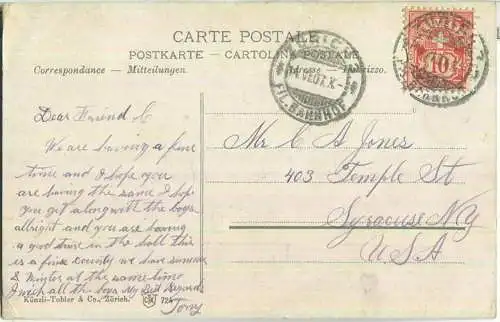 CARTE POSTALE
POSTKARTE - CARTOLINA POSTALE
Correspondance - Mitteilungen. Adresse - Indirizzo.
FIL. BAHNHOF
10
Dear Friend C
We are having a fine
time and I hope you
are having the same I hop
you get along with the boys
allright and you are having
a good time in the hall this
is a fine county we have summer
& Winter at the same time
I wish all the boys My Best Regards
Tony
Mr C A Jones
403 Temple St
Syracuse N.Y
U.S.A
Künzli-Tobler & Co., Zürich. 724